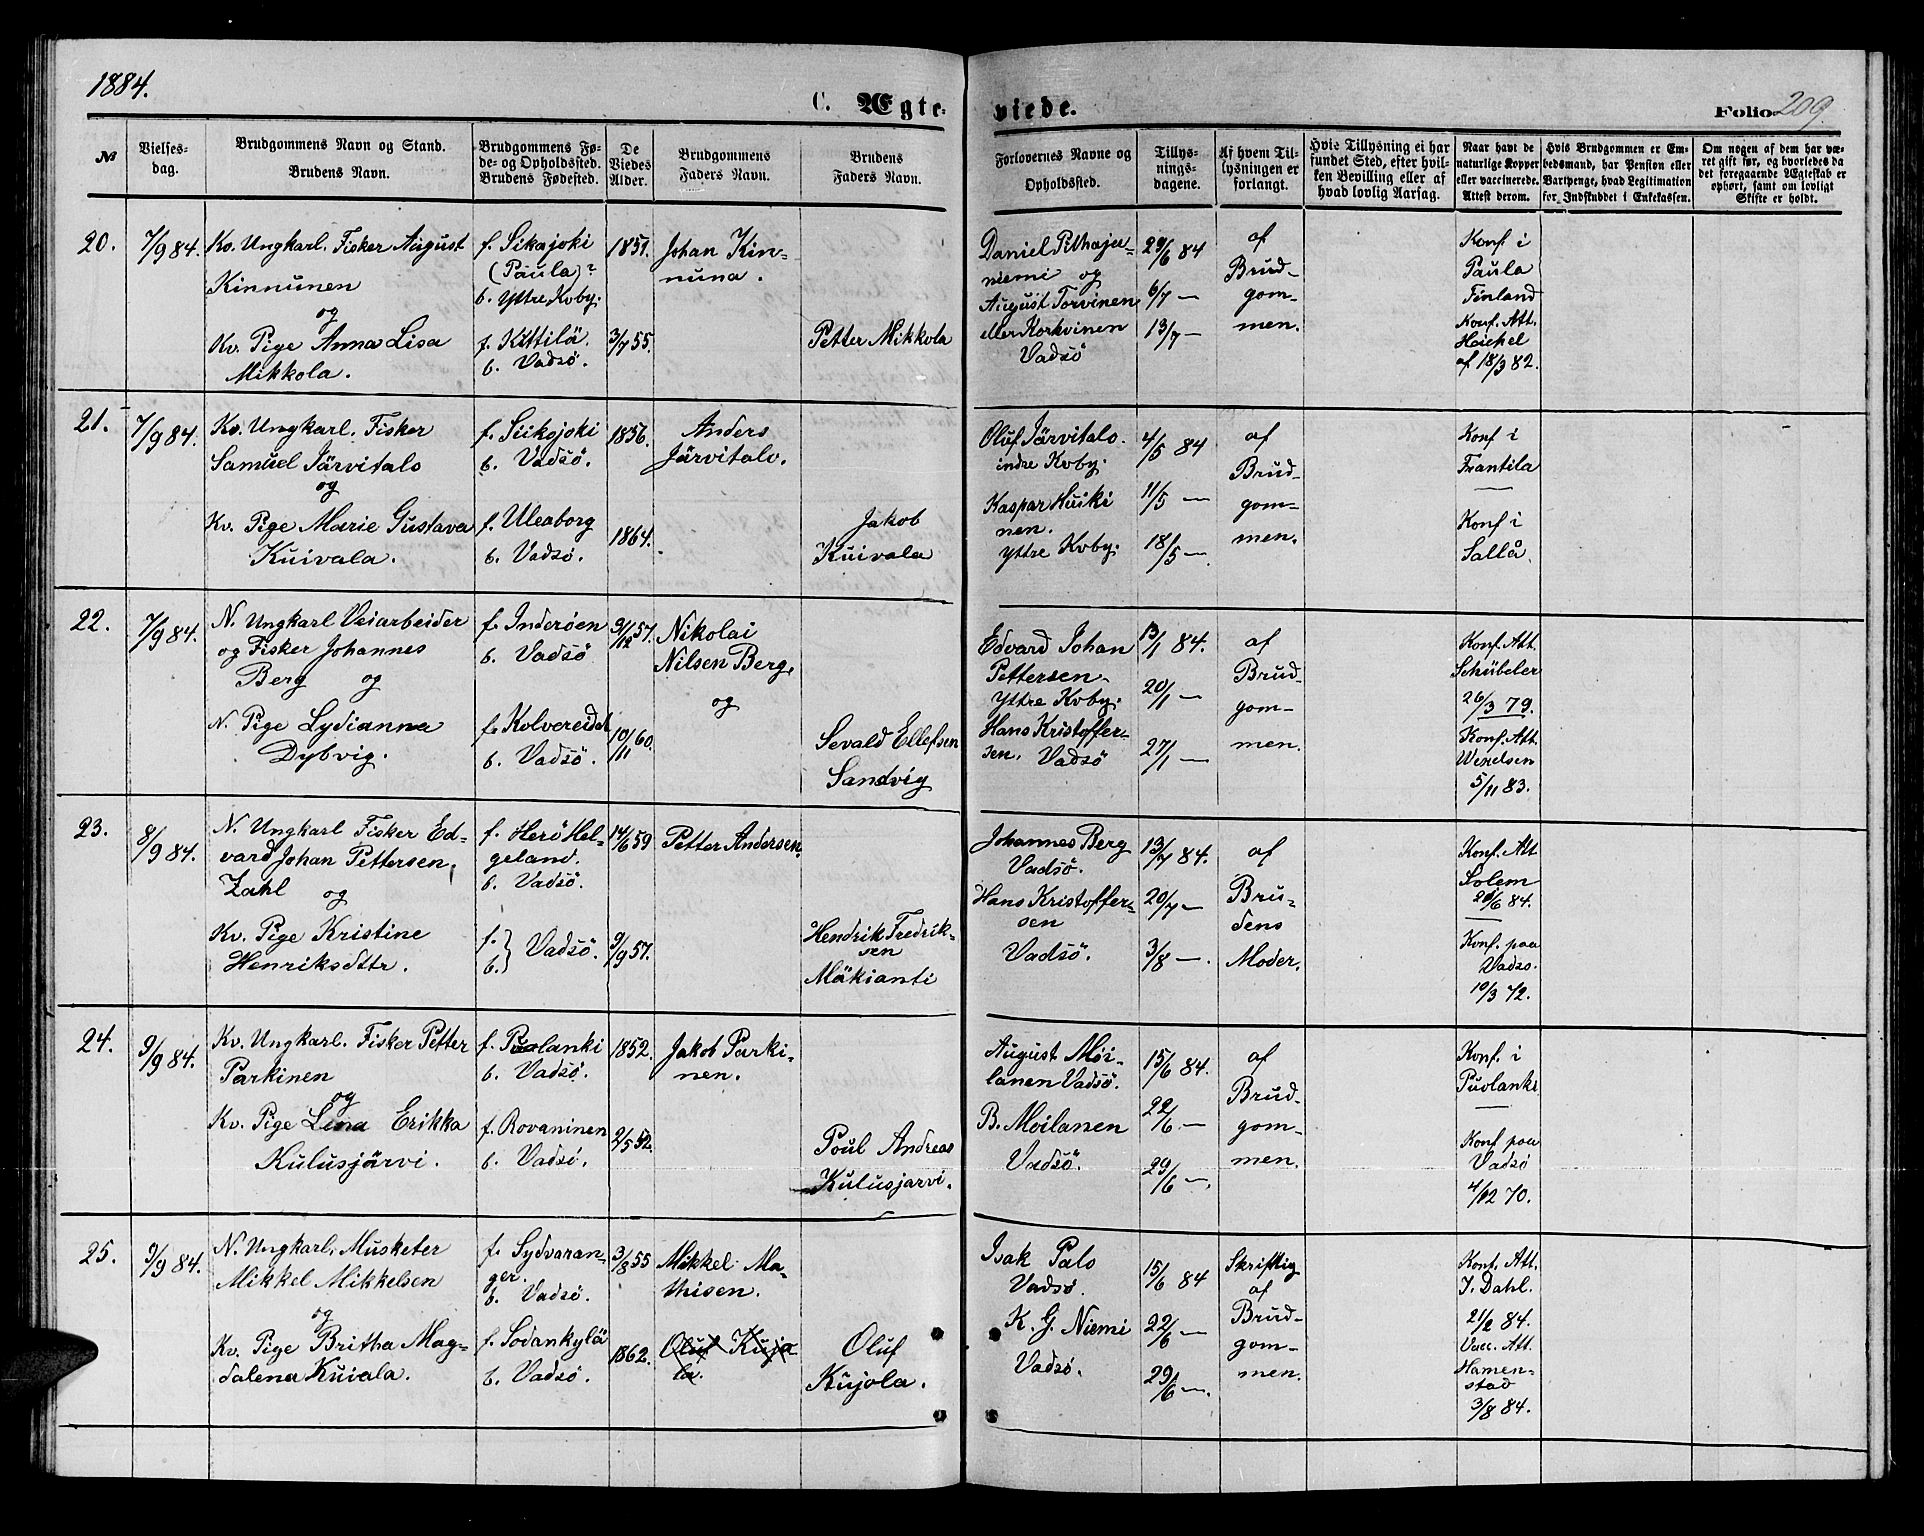 1884.
C. Ægte-
viede.
Folio 209.
No
Vielses-
dag.
Brudgommens Navn og Stand.
Brudens Navn.
Brudgommens Fø-
de- og Opholdssted.
Brudens Fødested.
De
Viedes
Alder.
Brudgommens
Faders Navn.
Brudens
Faders Navn.
Forlovernes Navne og
Opholdssted.
Tillys-
nings-
dagene.
Af hvem Til-
lysningen er
forlangt.
Hvis Tillysning ei har
fundet Sted, efter hvil-
ken Bevilling eller af
hvad lovlig Aarsag.
Naar havt de
naturlige Kopper
eller vaccinerede.
Attest derom.
Hvis Brudgommen er Em-
bedsmand, har Pension eller
Vartpenge, hvad Legitimation
for Indskuddet i Enkekassen.
Om nogen af dem har væ-
ret gift før, og hvorledes da
det foregaaende Ægteskab er
ophørt, samt om lovligt
Skifte er holdt.
20.
7/9 84.
Kv. Ungkarl. Fisker August
Kinnunen
og
Kv. Pige Anna Lisa
Mikkola.
f. Sikajoki
(Paula)?
b. Yttre Kvby.
f. Kittilä
b. Vadsö.
1851.
3/7 55.
Johan Kin-
nuna.
Petter Mikkola
Daniel Pithaja-
niemi og
August Torvinen
eller Korkvinen
Vadsö
29/6 84
6/7 —
13/7 —
af
Brud-
gom-
men.
Konf i
Paula
Finland
Konf. Att.
Heickel
af 18/3 82.
21.
7/9 84.
Kv. Ungkarl. Fisker
Samuel Järvitalo
og
Kv. Pige Marie Gustava
Kuivala.
f. Siikajoki
b. Vadsö.
f. Uleaborg
b. Vadsö.
1856.
1864.
Anders
Järvitalo.
Jakob
Kuivala
Oluf Järvitalo.
indre Kvby.
Kaspar Huiki
nen.
Yttre Kvby.
4/5 84
11/5 —
18/5 —
af
Brud-
gom-
men.
Konf i
Frantila
Konf i
Sallå
22.
7/9 84.
N. Ungkarl Veiarbeider
og Fisker Johannes
Berg og
N. Pige Lydianna
Dybvig.
f. Inderöen
b. Vadsö
f. Kolvereidet
b. Vadsö.
9/12 57.
10/11 60.
Nikolai
Nilsen Berg.
og
Sevald Ellefsen
Sandvig
Edvard Johan
Pettersen
Yttre Kvby.
Hans Kristoffer-
sen. Vadsö
13/1 84.
20/1 —
27/1 —
af
Brud-
gom-
men.
Konf. Att.
Schübeler
26/3 79.
Konf. Att.
Wexelsen
5/11 83.
23.
8/9 84.
N. Ungkarl Fisker Ed-
vard Johan Pettersen,
Zahl og
Kv. Pige Kristine
Henriksdttr.
f. Herö Hel-
geland.
b. Vadsö.
f.
b. } Vadsö.
14/6 59
9/9 57.
Petter Andersen.
Hendrik Fredrik-
sen
Mäkianti
Johannes Berg
Vadsö.
Hans Kristoffer-
sen
Vadsö.
13/7 84.
20/7 —
3/8 —.
af
Bru-
dens
Moder.
Konf. Att
Solem
20/6 84.
Konf. paa
Vadso.
10/3 72.
24.
9/9 84.
Kv. Ungkarl. Fisker Petter
Parkinen
og
Kv. Pige Lena Erikka
Kulusjärvi.
f. Puolanki
b. Vadsö.
f. Rovaninen
b. Vadsö.
1852.
2/5 52.
Jakob Parki-
nen.
Poul Andreas
Kulusjarvi.
August Möi-
lanen Vadsö.
B. Möilanen
Vadsö.
15/6 84.
22/6 —
29/6 —.
af
Brud-
gom-
men.
Konf. i
Puolanki
Konf paa
Vadsö
4/12 70.
25.
9/9 84.
N. Ungkarl. Musketer
Mikkel Mikkelsen
og
Kv. Pige Britha Mag-
dalena Kuiala.
f. Sydvaran-
ger.
b. Vadsö.
f. Sodankylä
b. Vadsö.
3/8 55
1862.
Mikkel Ma-
thisen.
Oluf Kuja
la.
Oluf
Kujola.
Isak Palo
Vadsö.
K. G. Niemi
Vadsö.
15/6 84
22/6 —
29/6 —.
Skriftlig
af
Brud-
gom-
men.
Konf. Att.
J. Dahl.
21/2 84.
Vacc. Att.
Hamen-
stad
3/8 84.